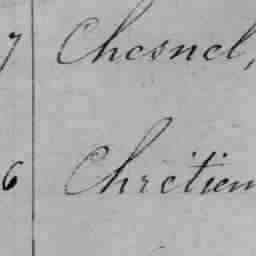 7 Chesnel,
6 Chrétien